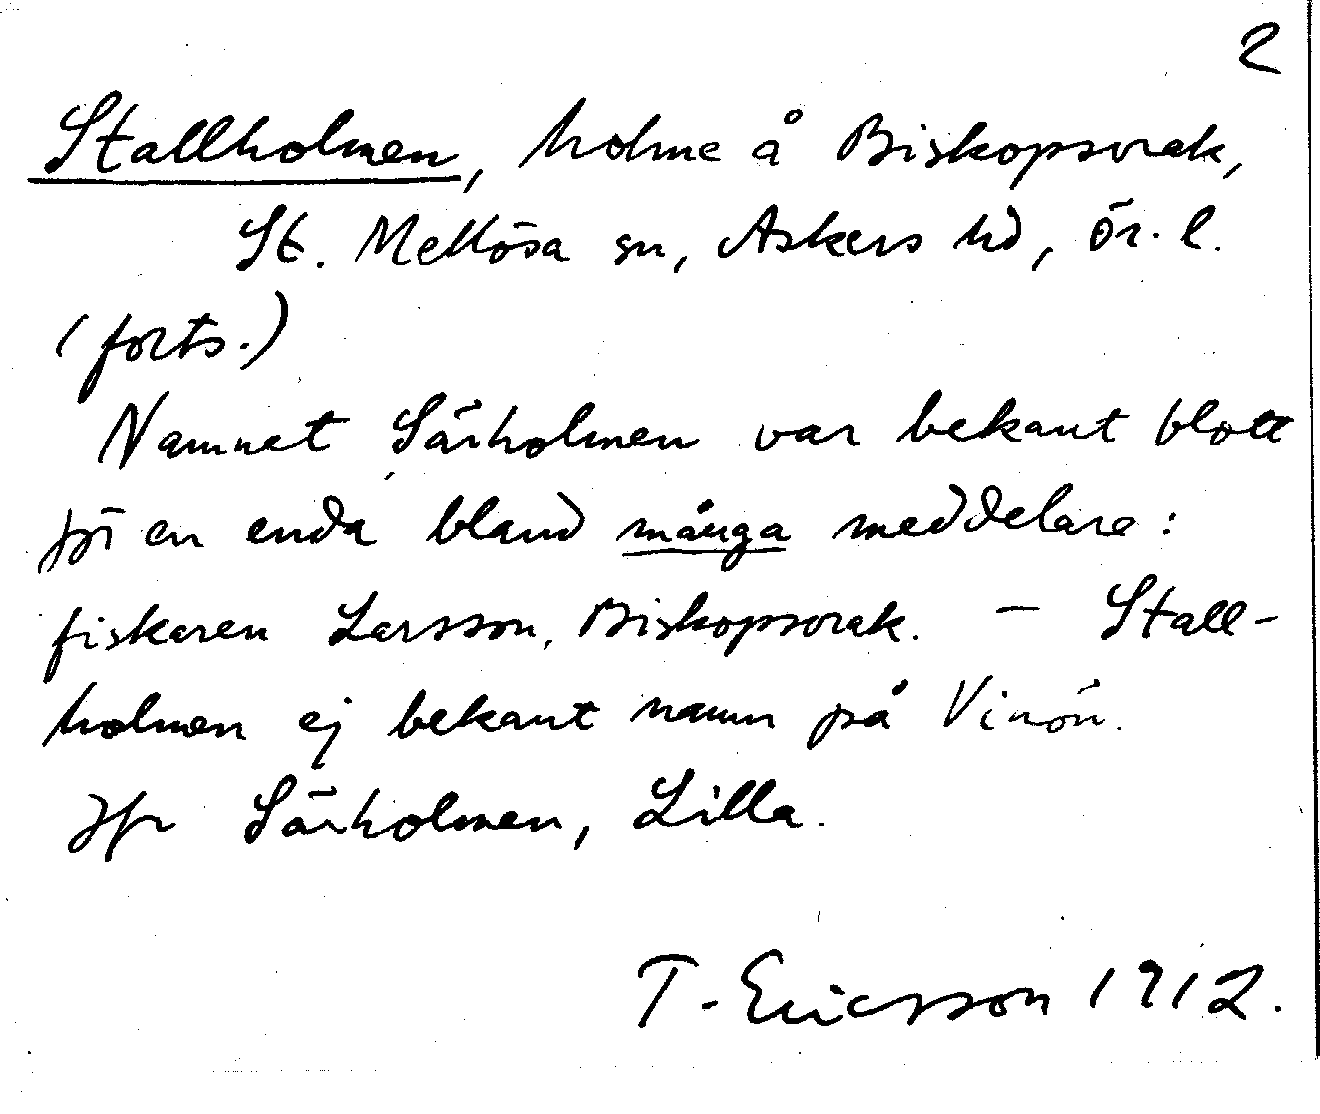 2
Stallholmen, holme å Biskopsvrak,
St. Mellösa sn, Askers hd, Ör. l.
(forts.)
Namnet Särholmen var bekant blott
för en enda bland många meddelare:
fiskaren Larsson, Biskopsvrak. — Stall-
holmen ej bekant namn på Vinön.
Jfr Särholmen, Lilla.
T. Ericsson 1912.